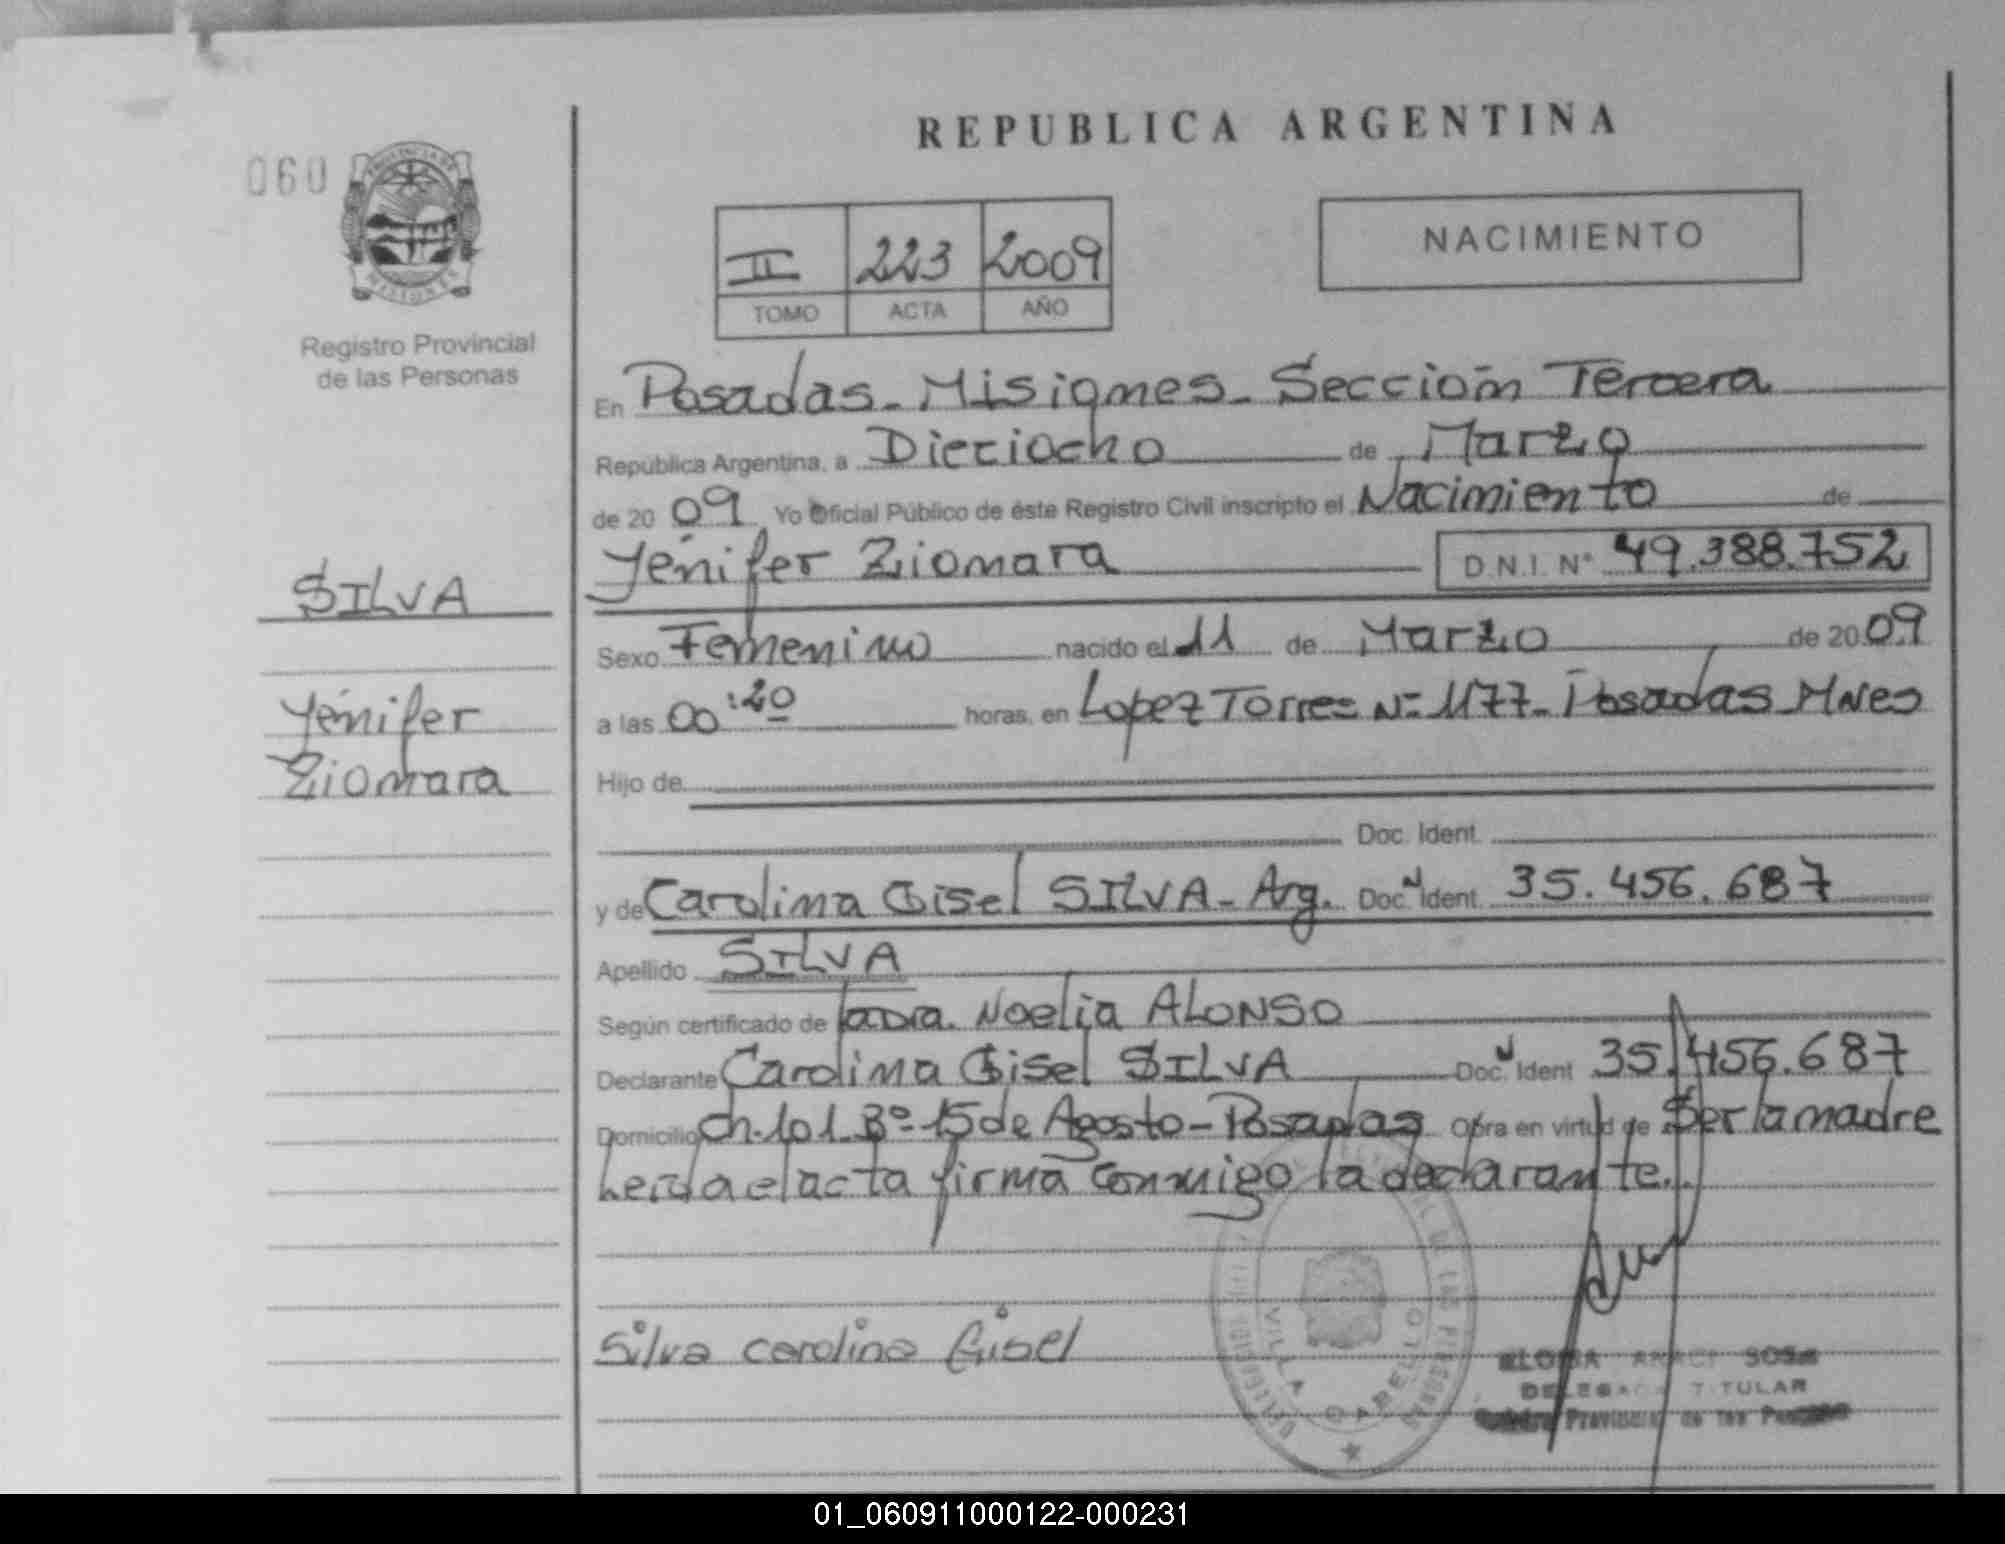 REPUBLICA ARGENTINA
060
PROVINCIA DE
MISIONES
Registro Provincial
de las Personas
II 223 2009
TOMO ACTA AÑO
NACIMIENTO
En Posadas - Misiones - Sección Tercera
República Argentina, a Dieciocho de Marzo
de 2009 Yo Oficial Público de éste Registro Civil inscripto el Nacimiento de
Yénifer Ziomara D.N.I. Nº 49.388.752
SILVA
Yénifer
Ziomara
Sexo Femenino nacido el 11 de Marzo de 2009
a las 00:20 horas, en Lopez Torres Nº 1177 - Posadas Mnes
Hijo de
Doc. Ident.
y de Carolina Gisel SILVA - Arg. Doc. Ident. 35.456.687
Apellido SILVA
Según certificado de la Dra. Noelia ALONSO
Declarante Carolina Gisel SILVA Doc. Ident 35.456.687
Domicilio Ch. 101 Bº 15 de Agosto - Posadas Obra en virtud de Ser la madre
Leída el acta firma conmigo la declarante.
Silva carolina Gisel
VILLA SARELLO
SOSA
DELEGADA TITULAR
Provincial de las Personas
01_060911000122-000231